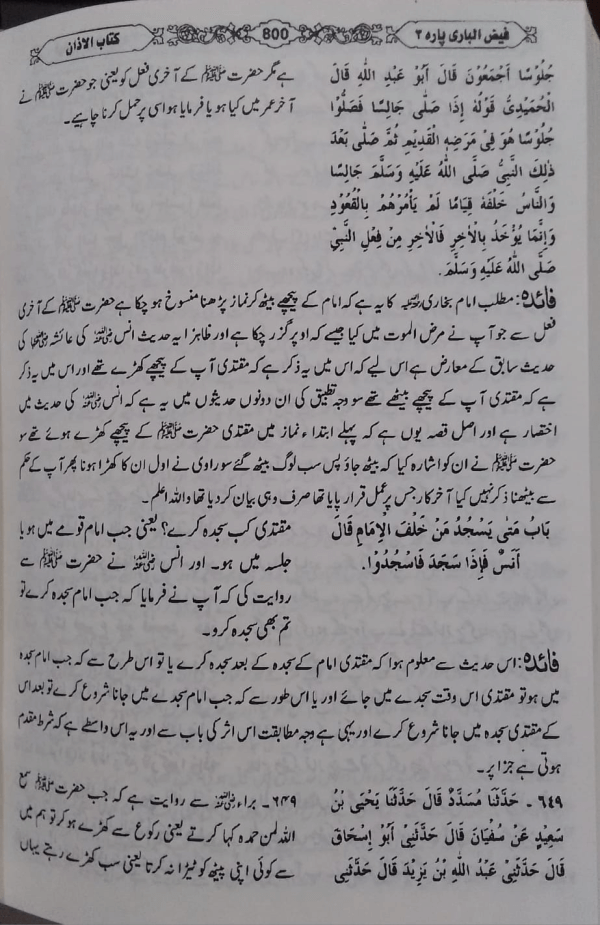 فیض الباری پارہ ۳
800
کتاب الاذان
جُلُوْسًا أَجْمَعُوْنَ قَالَ أَبُوْ عَبْدِ اللّٰهِ قَالَ
الْحُمَيْدِيُّ قَوْلُهُ إِذَا صَلّٰى جَالِسًا فَصَلُّوْا
جُلُوْسًا هُوَ فِيْ مَرَضِهِ الْقَدِيْمِ ثُمَّ صَلّٰى بَعْدَ
ذٰلِكَ النَّبِيُّ صَلَّى اللّٰهُ عَلَيْهِ وَسَلَّمَ جَالِسًا
وَالنَّاسُ خَلْفَهُ قِيَامًا لَمْ يَأْمُرْهُمْ بِالْقُعُوْدِ
وَإِنَّمَا يُؤْخَذُ بِالْاٰخِرِ فَالْاٰخِرِ مِنْ فِعْلِ النَّبِيِّ
صَلَّى اللّٰهُ عَلَيْهِ وَسَلَّمَ.
ہے مگر حضرت ﷺ کے آخری فعل کو یعنی جو حضرت ﷺ نے
آخر عمر میں کیا ہو یا فرمایا ہو اسی پر حمل کرنا چاہیے۔
فائدہ: مطلب امام بخاری رحمہ اللہ کا یہ ہے کہ امام کے پیچھے بیٹھ کر نماز پڑھنا منسوخ ہو چکا ہے حضرت ﷺ کے آخری
فعل سے جو آپ نے مرض الموت میں کیا جیسے کہ اوپر گزر چکا ہے اور ظاہرًا یہ حدیث انس رضی اللہ عنہ کی عائشہ رضی اللہ عنہا کی
حدیث سابق کے معارض ہے اس لیے کہ اس میں یہ ذکر ہے کہ مقتدی آپ کے پیچھے کھڑے تھے اور اس میں یہ ذکر
ہے کہ مقتدی آپ کے پیچھے بیٹھے تھے سو وجہ تطبیق کی ان دونوں حدیثوں میں یہ ہے کہ انس رضی اللہ عنہ کی حدیث میں
اختصار ہے اور اصل قصہ یوں ہے کہ پہلے ابتداء نماز میں مقتدی حضرت ﷺ کے پیچھے کھڑے ہوئے تھے سو
حضرت ﷺ نے ان کو اشارہ کیا کہ بیٹھ جاؤ پس سب لوگ بیٹھ گئے سو راوی نے اول ان کا کھڑا ہونا پھر آپ کے حکم
سے بیٹھنا ذکر نہیں کیا آخر کار جس پر عمل قرار پایا تھا صرف وہی بیان کر دیا تھا واللہ اعلم۔
بَابُ مَتٰى يَسْجُدُ مَنْ خَلْفَ الْإِمَامِ قَالَ
أَنَسٌ فَإِذَا سَجَدَ فَاسْجُدُوْا.
مقتدی کب سجدہ کرے؟ یعنی جب امام قومے میں ہو یا
جلسہ میں ہو۔ اور انس رضی اللہ عنہ نے حضرت ﷺ سے
روایت کی کہ آپ نے فرمایا کہ جب امام سجدہ کرے تو
تم بھی سجدہ کرو۔
فائدہ: اس حدیث سے معلوم ہوا کہ مقتدی امام کے سجدہ کے بعد سجدہ کرے یا تو اس طرح سے کہ جب امام سجدہ
میں ہو تو مقتدی اس وقت سجدے میں جائے اور یا اس طور سے کہ جب امام سجدے میں جانا شروع کرے تو بعد اس
کے مقتدی سجدہ میں جانا شروع کرے اور یہی ہے وجہ مطابقت اس اثر کی باب سے اور یہ اس واسطے ہے کہ شرط مقدم
ہوتی ہے جزا پر۔
٦٤٩ـ حَدَّثَنَا مُسَدَّدٌ قَالَ حَدَّثَنَا يَحْيَى بْنُ
سَعِيْدٍ عَنْ سُفْيَانَ قَالَ حَدَّثَنِيْ أَبُوْ إِسْحَاقَ
قَالَ حَدَّثَنِيْ عَبْدُ اللّٰهِ بْنُ يَزِيْدَ قَالَ حَدَّثَنِي
۶۴۹۔ براء رضی اللہ عنہ سے روایت ہے کہ جب حضرت ﷺ سمع
اللہ لمن حمدہ کہا کرتے یعنی رکوع سے کھڑے ہو کر تو ہم میں
سے کوئی اپنی پیٹھ کو ٹیڑا نہ کرتا یعنی سب کھڑے رہتے یہاں